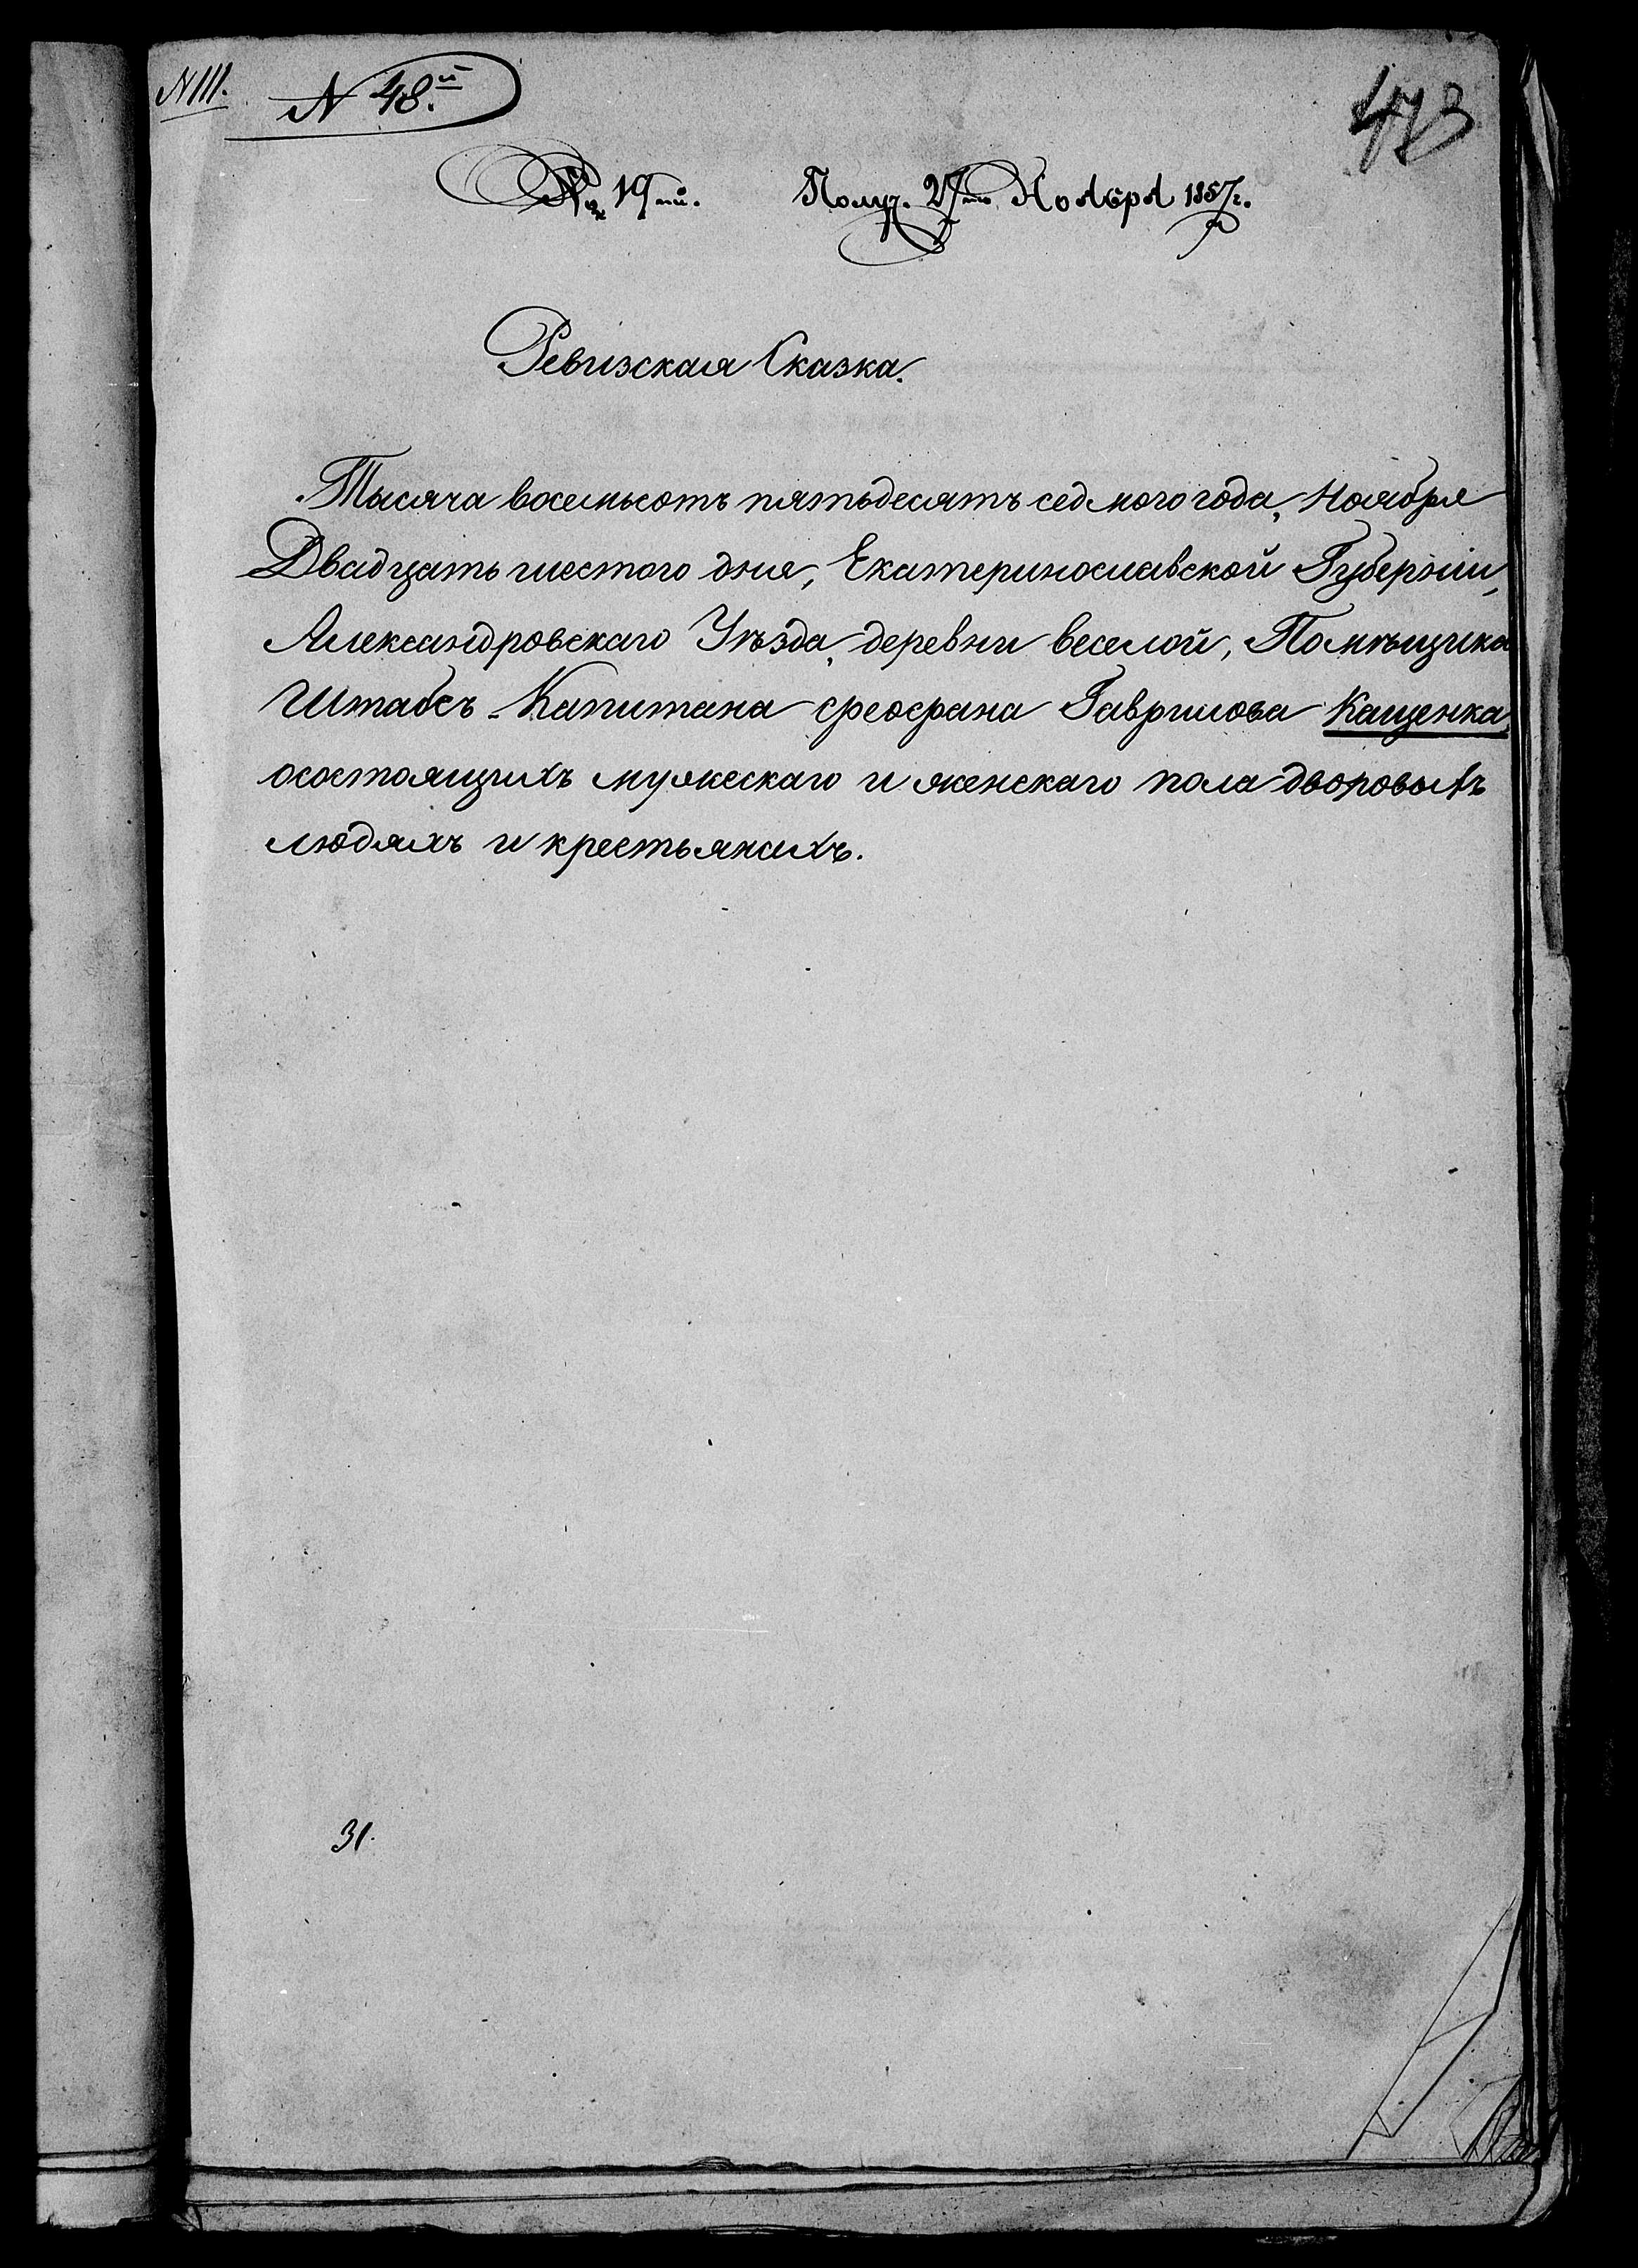 N 111.
N 48.й
473
№ 19ый. Получ. 27го Ноября 1857г.
Ревизская Сказка.
Тысяча восемьсотъ пятьдесятъ седмого года, Ноября
Двадцать шестого дня, Екатеринославской Губерніи,
Александровскаго Уѣзда, деревни веселой, Помѣщика
Штабсъ-Капитана Феофана Гаврилова Кащенка,
осостоящихъ мужескаго и женскаго пола дворовыхъ
людяхъ и крестьянахъ.
31.